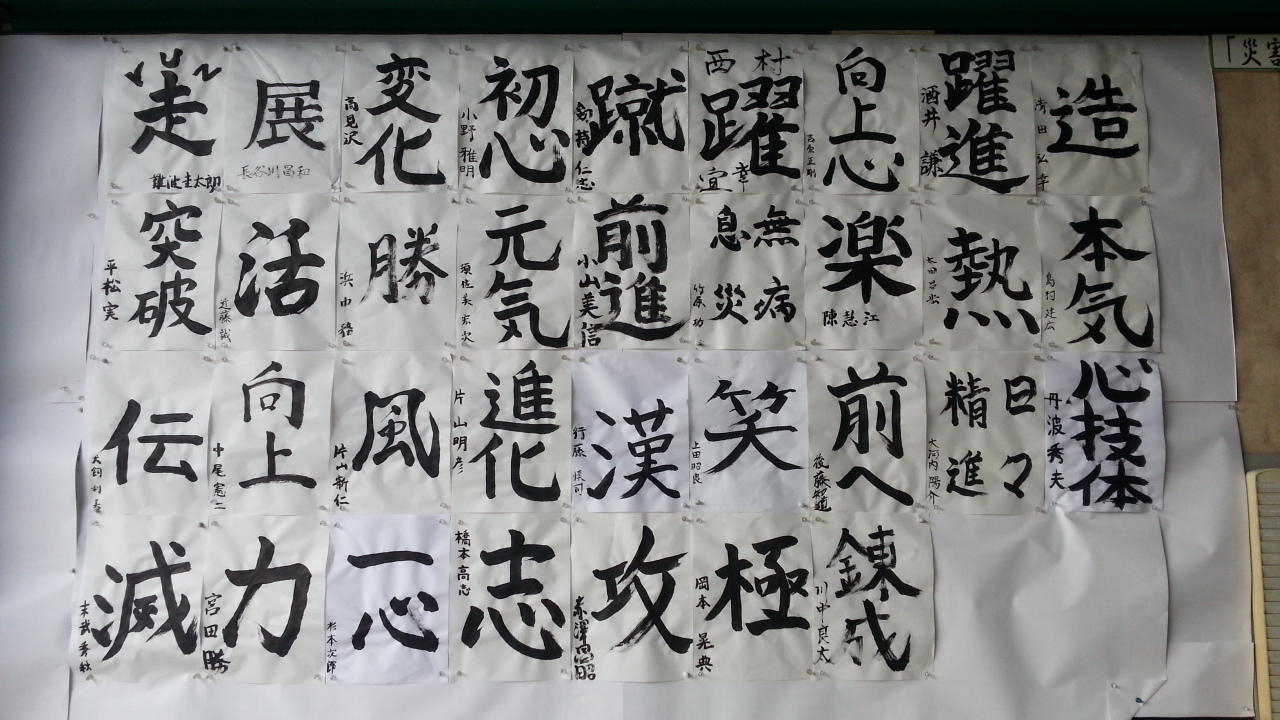 走
難波圭太朗
展
長谷川昌和
変化
高見沢
初心
小野雅明
蹴
仁志
躍
西村宜幸
向上心
躍進
酒井 謙
造
「災害
突破
平松 実
活
近藤 誠
勝
浜中
元気
前進
小山美信
無病
息災
竹原 功
楽
陳慧江
熱
本気
島村 建広
伝
犬飼
向上
中尾憲二
風
片山新仁
進化
片山明彦
漢
行藤
笑
上田昭良
前へ
後藤知道
日々
精進
大河内陽介
心技体
丹波秀夫
滅
末武秀秋
力
宮田勝
一心
杉本文師
志
橋本高志
攻
極
岡本 晃典
錬成
川中良太